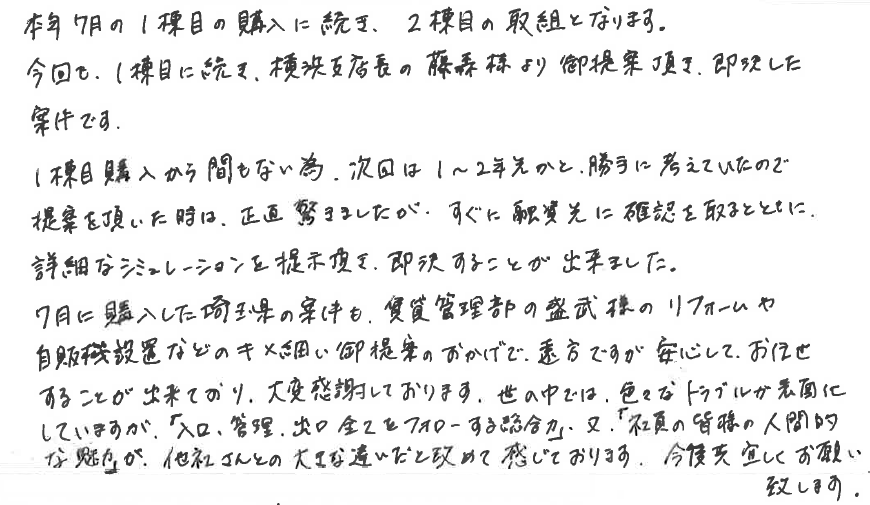 本年7月の1棟目の購入に続き、2棟目の取組となります。
今回も、1棟目に続き、横浜支店長の藤森様より御提案頂き、即決した
案件です。
1棟目購入から間もない為、次回は1～2年先かと、勝手に考えていたので
提案を頂いた時は、正直驚きましたが、すぐに融資先に確認を取るとともに、
詳細なシミュレーションを提示頂き、即決することが出来ました。
7月に購入した埼玉県の案件も、賃貸管理部の盛武様のリフォームや
自販機設置などのキメ細い御提案のおかげで、遠方ですが安心して、お任せ
することが出来ており、大変感謝しております。世の中では、色々なトラブルが表面化
していますが、「入口、管理、出口全てをフォローする総合力」、又、「社員の皆様の人間的
な魅力」が、他社さんとの大きな違いだと改めて感じております。今後共宜しくお願い
致します。